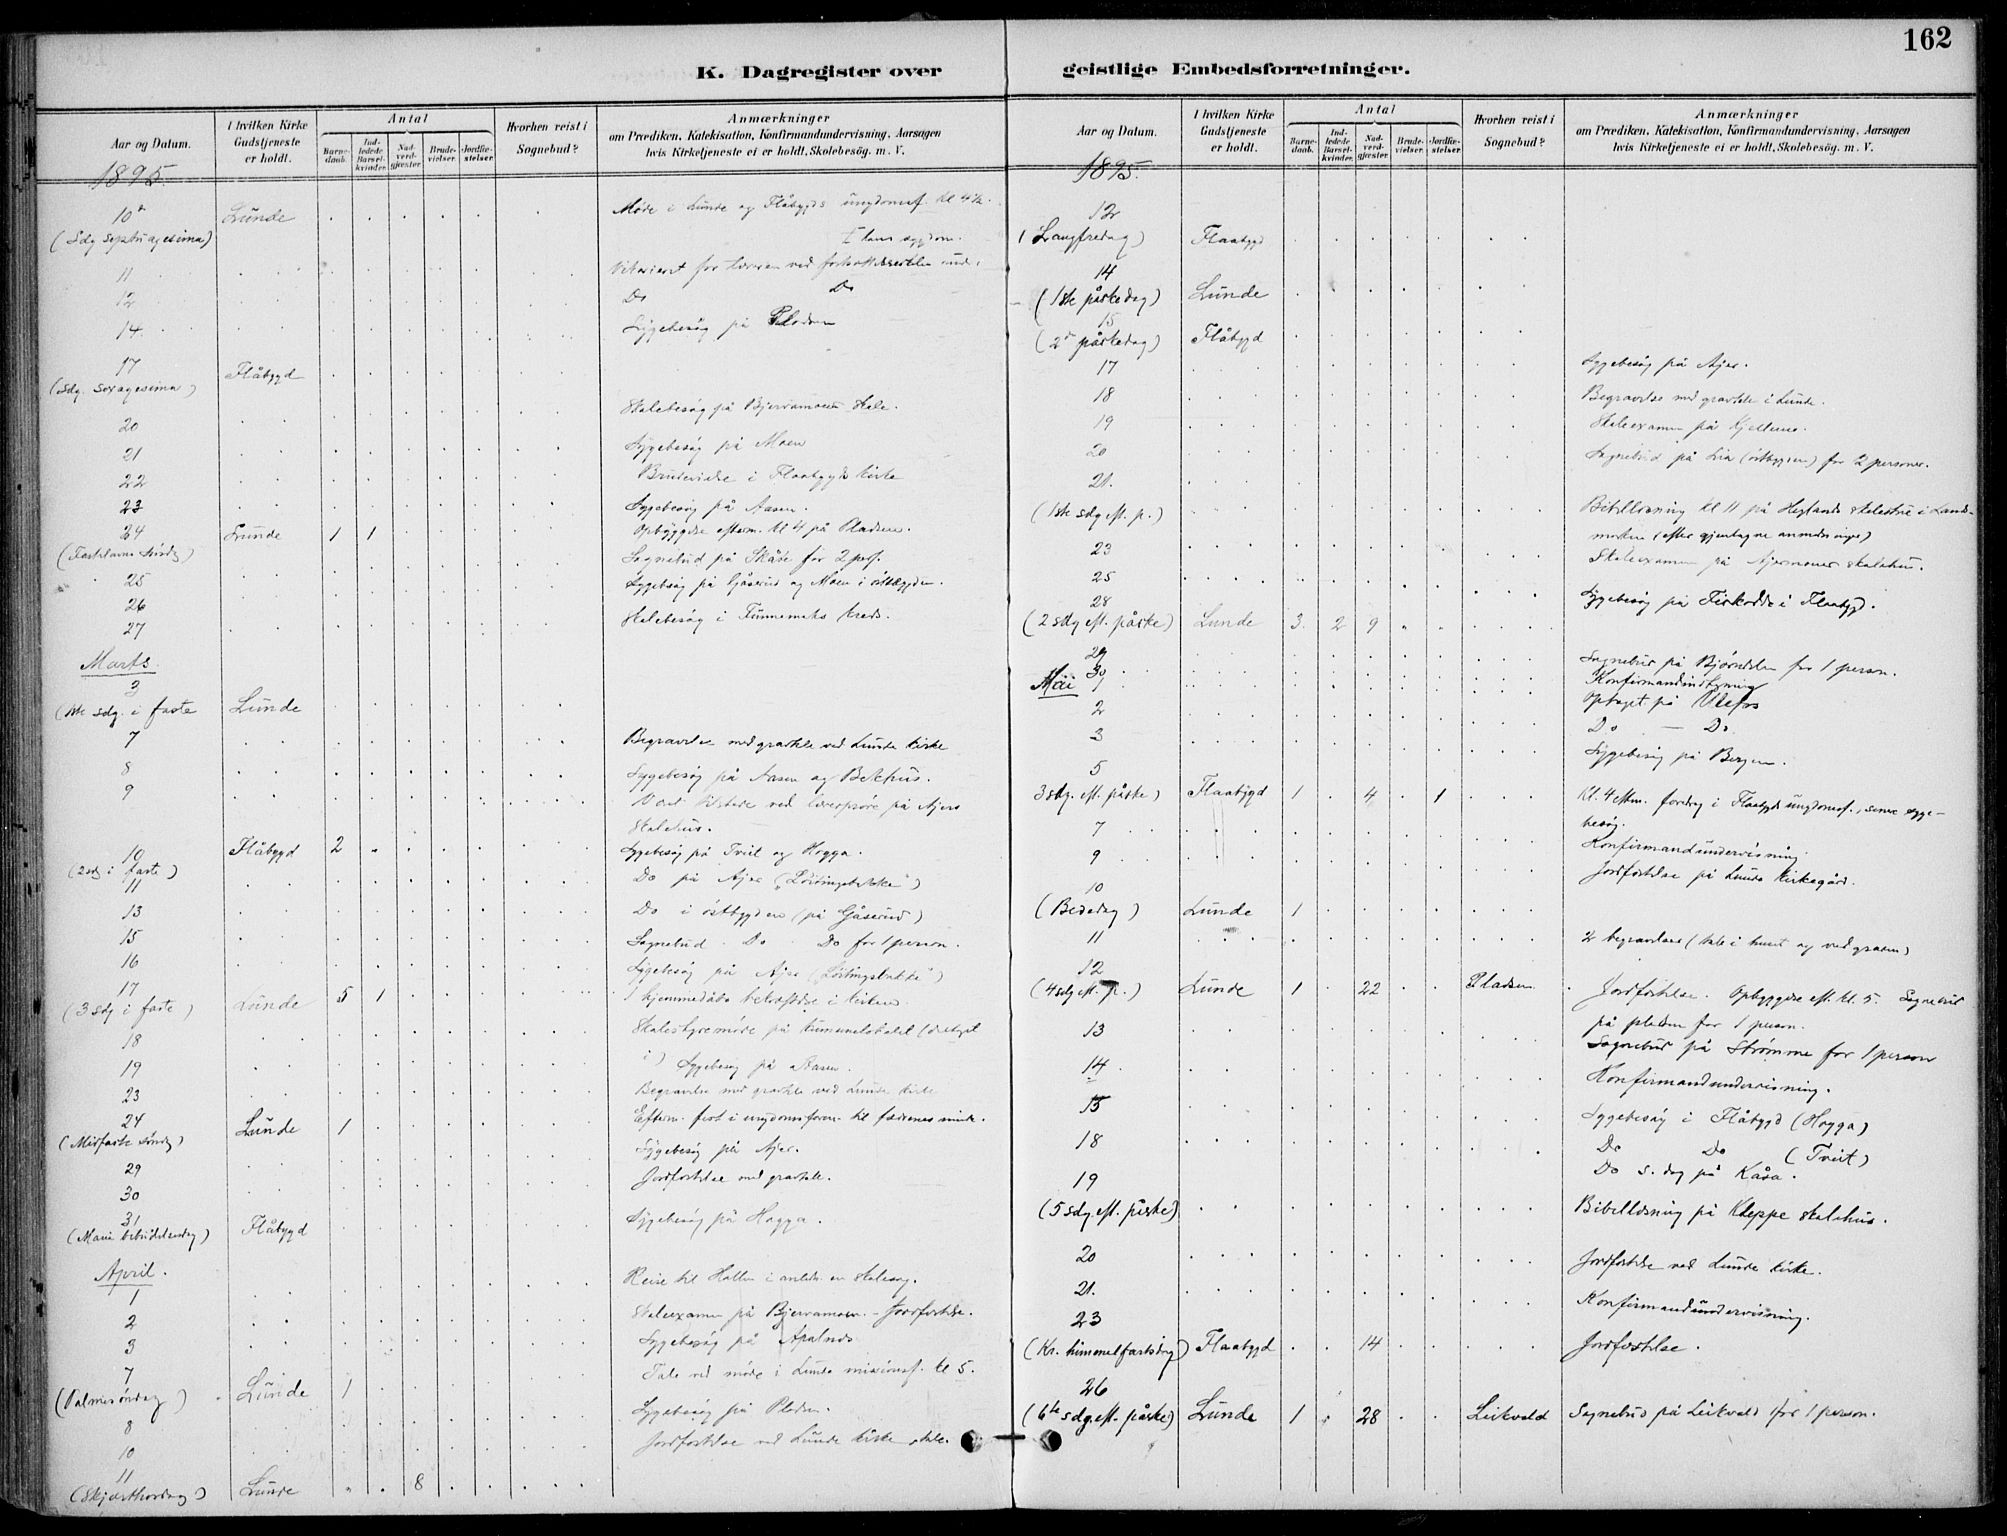 162
K. Dagregister over geistlige Embedsforretninger.
Aar og Datum.
I hvilken Kirke Gudstjeneste er holdt.
Antal
Barnedaab.
Indledede Barselkvinder.
Nadverdgjæster
Brudevielser.
Jordfæstelser
Hvorhen reist i Sognebud?
Anmærkninger
om Prædiken, Katekisation, Konfirmandundervisning, Aarsagen
hvis Kirketjeneste ei er holdt, Skolebesøg. m. V.
1895.
10 Lunde Møde i Lunde og Flåbygds ungdomsf. kl 4½.
(Sdg septuagesima)
11 Vikarieret for læreren ved
12 Do Do
14 Sygebesøg på Pladsen
17
(Sdg. sexagesima) Flåbygd
20 Skolebesøg på Bjervamoen skole.
21 Sygebesøg på Moen
22 Brudevielse i Flaabygds kirke
23 Sygebesøg på Aasen.
24 Lunde 1 1 Opbyggelse efterm. kl 4 på Pladsen.
(Fastelavns søndg) Sognebud på Skåse for 2 pers.
25 Sygebesøg på Gåserud og Moen i østbygden.
26 Skolebesøg i kreds.
27
Marts.
3
(1ste sdg. i faste Lunde
7 Begravelse med gravtale ved Lunde kirke
8 Sygebesøg på Aasen og
9 Var tilstede ved lærerprøve på Ajers
skolehus.
10 Flåbygd 2 Sygebesøg på Tveit og Hogga.
(2 sdg i faste)
11 Do på Ajer
13 Do i østbygden (på Gåserud)
15 Sognebud Do Do for 1 person.
16 Sygebesøg på Ajer
17
(3 sdg i faste) Lunde 5 1 1 hjemmedåbs bekræftelse i kirken.
18 Skolestyremøde på kommunelokalet
19 Sygebesøg på Aasen.
23 Begravelse med gravtale ved Lunde kirke
24
(Midfaste søndg) Lunde 1
29 Sygebesøg på Ajer.
30 Jordfæstelse med gravtale.
31
(Marie bebudelsesdag) Flåbygd Sygebesøg på Hogga.
April.
1 Reise til Hollen i anledn. en skolesag.
2 Skoleexamen på Bjervamoen. - Jordfæstelse.
3 Sygebesøg på Apalnes
7 Tale ved møde i Lunde missionsf. kl 5.
(Palmesøndag) Lunde 1
8 Sygebesøg på Pladsen.
10 Jordfæstelse ved Lunde kirke, tale.
11
(Skjærthorsdag) Lunde 8
Aar og Datum.
I hvilken Kirke Gudstjeneste er holdt.
Antal
Barnedaab.
Indledede Barselkvinder.
Nadverdgjæster
Brudevielser.
Jordfæstelser
Hvorhen reist i Sognebud?
Anmærkninger
om Prædiken, Katekisation, Konfirmandundervisning, Aarsagen
hvis Kirketjeneste ei er holdt, Skolebesøg. m. V.
1895.
12
(Langfredag) Flaabygd
14
(1ste påskedag) Lunde
15
(2den påskedag) Flåbygd
17 Sygebesøg på Ajer.
18 Begravelse med gravtale i Lunde.
19 Skoleexamen på
20 Sognebud på Lia (østbygden) for 2 personer.
21.
(1ste sdg eft. p.) Bibellæsning kl 11 på Heglands skolestue i Landsmarken (efter gjentagne anmodninger)
23 Skoleexamen på Ajermoens skolehus.
25 Sygebesøg på i Flaabygd.
28
(2 sdg eft. påske) Lunde 3 2 9
29 Sognebud på Bjørndalen for 1 person.
30 Konfirmandindskrivning
Mai 1 Optaget på Ulefos
2 Do - Do.
3 Sygebesøg på Bergen.
5
3 sdg. eft. påske) Flaabygd 1 4 1 Kl. 4 eftm. foredrag i Flaabygds ungdomsf., senere sygebesøg.
7 Konfirmandundervisning
9 Jordfæstelse på Lunde kirkegård.
10
(Bededag) Lunde 1
11 2 begravelser (tale i huset og ved graven)
12
(4 sdg eft. p.) Lunde 1 22 Pladsen Jordfæstelse. Opbyggelse eft. kl. 5. Sognebud
på pladsen for 1 person.
13 Sognebud på Strømme for 1 person
14 Konfirmandundervisning.
15 Sygebesøg i Flåbygd (Hogga)
18 Do Do (Tveit)
Do s. dag på Kåsa.
19
(5 sdg. eft. påske) Bibellæsning på Kleppe skolehus.
20 Jordfæstelse ved Lunde kirke.
21. Konfirmandundervisning.
23
(Kr. himmelfartsdag) Flaabygd 14 Jordfæstelse.
26
(6te sdg. eft. påske) Lunde 1 28 Leikvold Sognebud på Leikvold for 1 person.